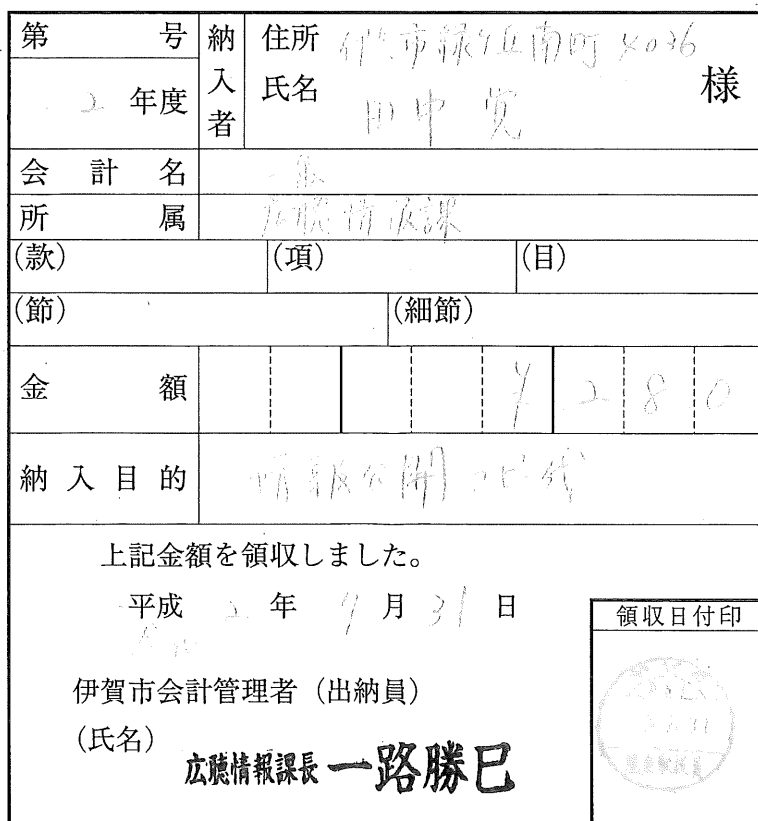 第 号
2 年度
納入者
住所 伊賀市緑ケ丘南町4036
氏名 田中 覚 様
会計名 一般
所属 広聴情報課
(款) (項) (目)
(節) (細節)
金額 ¥280
納入目的 情報公開コピー代
上記金額を領収しました。
平成 2 年 月 31 日
領収日付印
伊賀市会計管理者(出納員)
(氏名)
広聴情報課長 一路勝巳